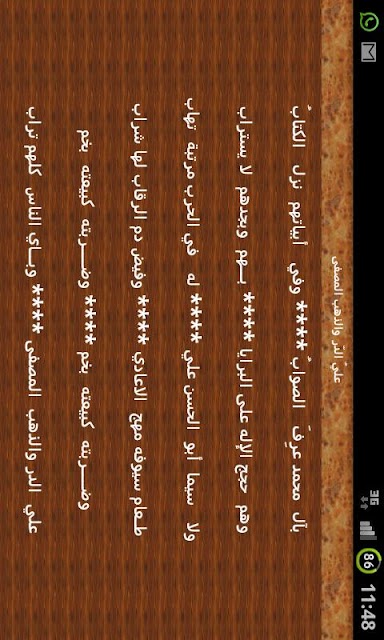 3G 86 11:48
عليّ الدّر والذهب المصفى
بآل محمد عرِفَ الصوابُ **** وفي أبياتهم نزل الكتابُ
وهم حجج الإله على البرايا **** بـهم وبجدهم لا يستراب
ولا سيما أبو الحسن علي **** له في الحرب مرتبة تهاب
طـعام سيوفه مهج الاعادي **** وفيض دم الرقاب لها شراب
وضـربته كبيعته بخم **** وضـربته كبيعته بخم
علي الدر والذهب المصفى **** وبـاي الناس كلهم تراب